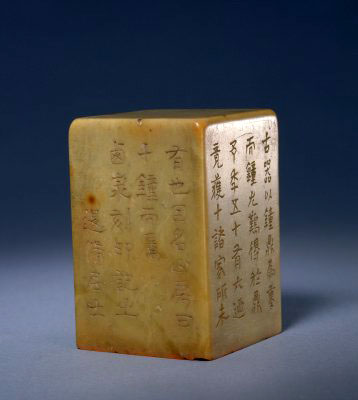 古器以鐘鼎為重
而鐘尤難得於鼎
予年五十有六迺
竟獲十諸家所未
有也因名山房曰
十鐘而屬
鹵泉刻印記之
居士